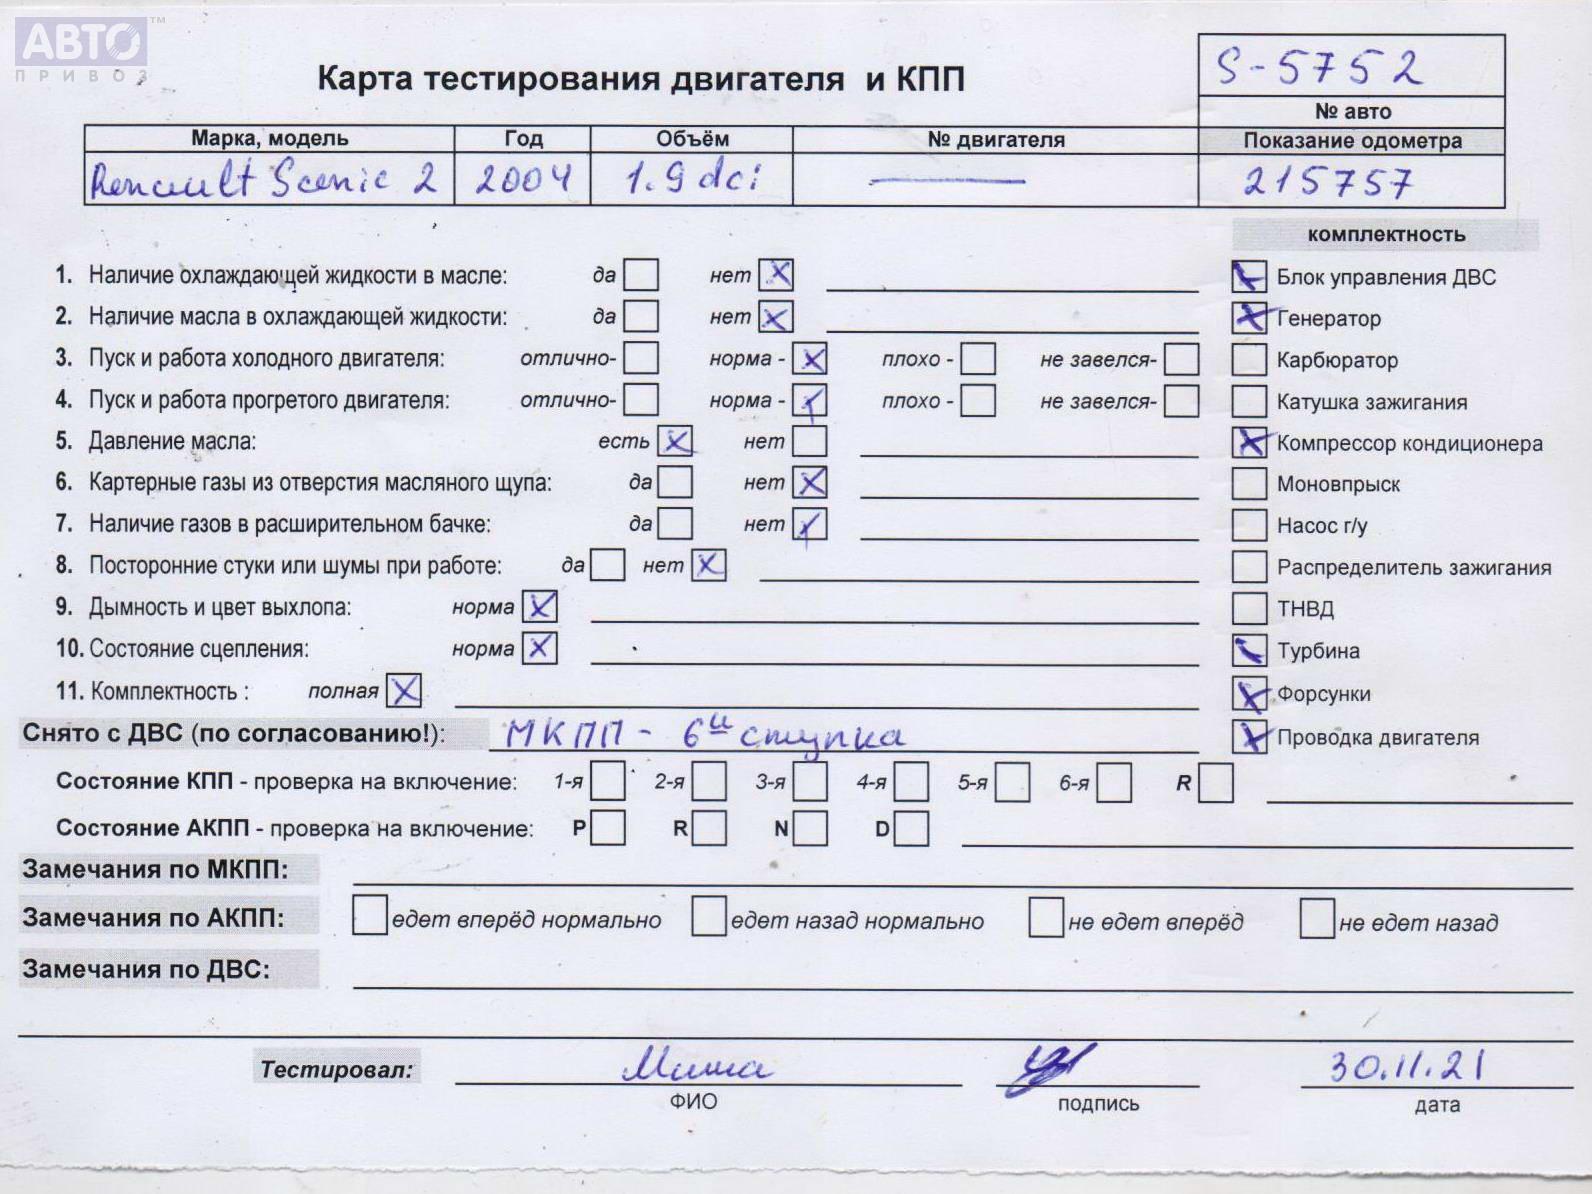 АВТО™
ПРИВОЗ
Карта тестирования двигателя и КПП
S-5752
№ авто
Марка, модель Год Объём № двигателя Показание одометра
Renault Scenic 2 2004 1.9 dci — 215757
комплектность
1. Наличие охлаждающей жидкости в масле: да нет X
Блок управления ДВС
2. Наличие масла в охлаждающей жидкости: да нет X
Генератор
3. Пуск и работа холодного двигателя: отлично- норма - X плохо - не завелся-
Карбюратор
4. Пуск и работа прогретого двигателя: отлично- норма - плохо - не завелся-
Катушка зажигания
5. Давление масла: есть X нет
Компрессор кондиционера
6. Картерные газы из отверстия масляного щупа: да нет X
Моновпрыск
7. Наличие газов в расширительном бачке: да нет
Насос г/у
8. Посторонние стуки или шумы при работе: да нет X
Распределитель зажигания
9. Дымность и цвет выхлопа: норма X
ТНВД
10. Состояние сцепления: норма X
Турбина
11. Комплектность : полная X
Форсунки
Снято с ДВС (по согласованию!): МКПП - 6и ступка
Проводка двигателя
Состояние КПП - проверка на включение: 1-я 2-я 3-я 4-я 5-я 6-я R
Состояние АКПП - проверка на включение: P R N D
Замечания по МКПП:
Замечания по АКПП: едет вперёд нормально едет назад нормально не едет вперёд не едет назад
Замечания по ДВС:
Тестировал: Миша 30.11.21
ФИО подпись дата